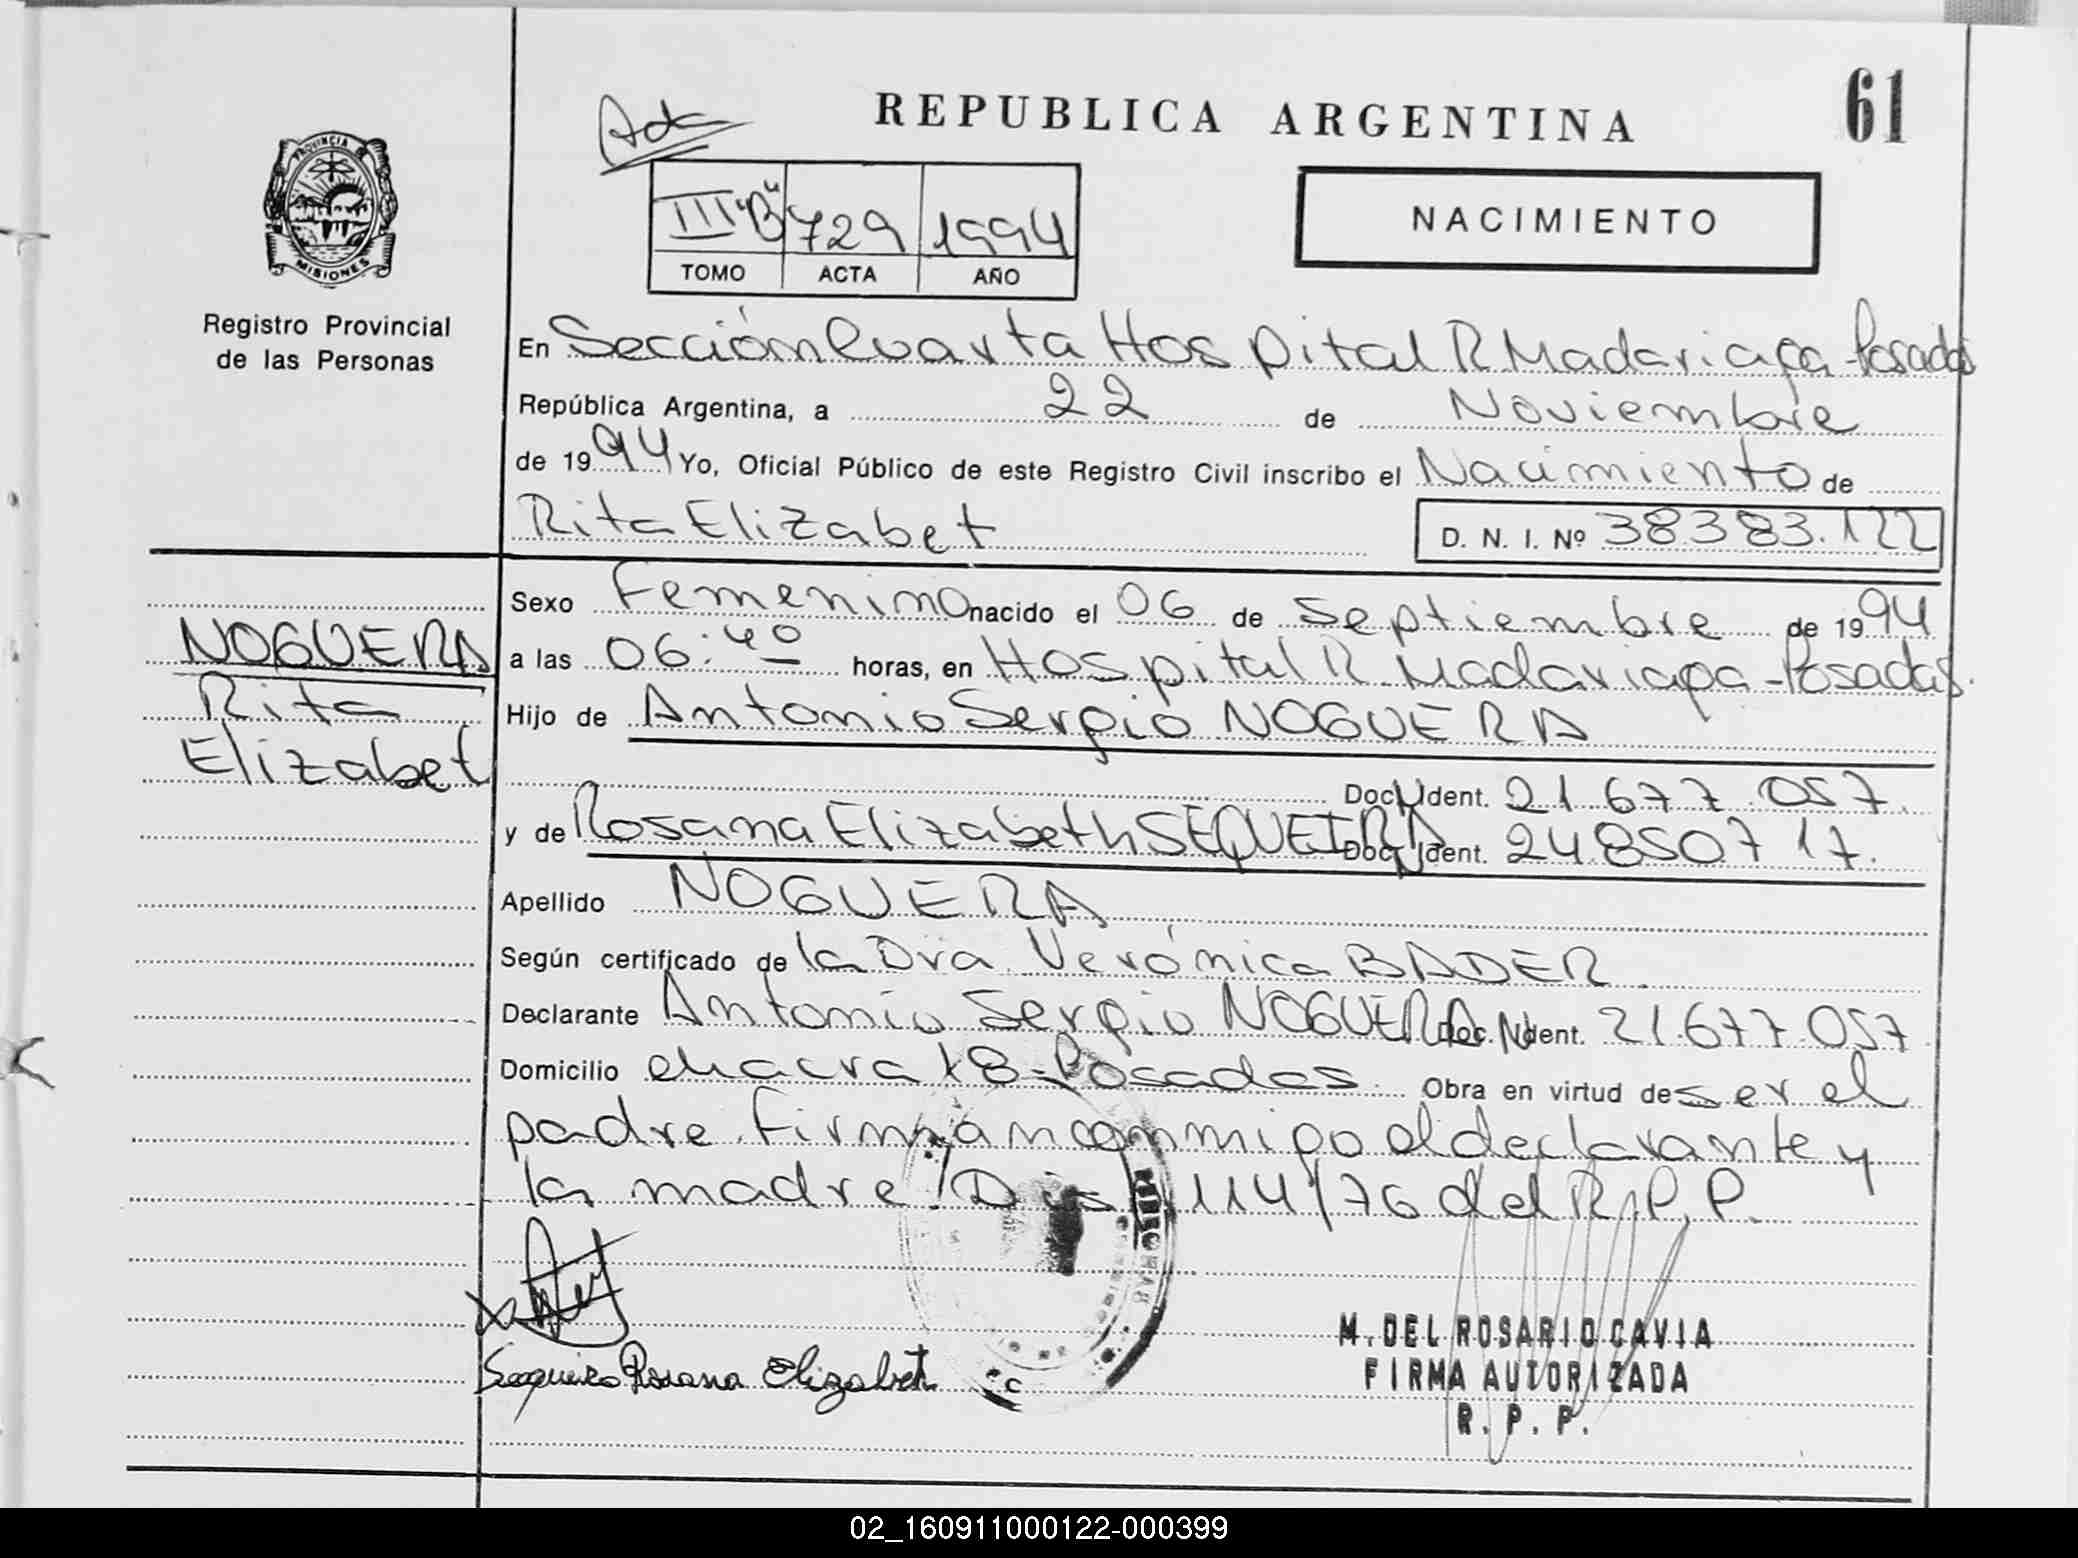 61
REPUBLICA ARGENTINA
Acta
III "B" 729 1994
TOMO ACTA AÑO
NACIMIENTO
PROVINCIA DE
MISIONES
Registro Provincial
de las Personas
En Sección Cuarta Hospital R Madariaga - Posadas
República Argentina, a 22 de Noviembre
de 1994 Yo, Oficial Público de este Registro Civil inscribo el Nacimiento de
Rita Elizabet D. N. I. Nº 38383.122
NOGUERA
Rita
Elizabet
Sexo Femenino nacido el 06 de Septiembre de 1994
a las 06:40 horas, en Hospital R. Madariaga - Posadas.
Hijo de Antonio Sergio NOGUERA
Doc. N Ident. 21.677.057.
y de Rosana Elizabeth SEQUEIRA Doc. N Ident. 24.850717.
Apellido NOGUERA
Según certificado de la Dra Verónica BADER
Declarante Antonio Sergio NOGUERA Doc. N Ident. 21.677.057
Domicilio chacra 18 - Posadas. Obra en virtud de ser el
padre. Firmán conmigo el declarante y
la madre. Dis 114/76 del R.P.P.
Sequeira Rosana Elizabeth
M. DEL ROSARIO CAVIA
FIRMA AUTORIZADA
R. P. P.
02_160911000122-000399